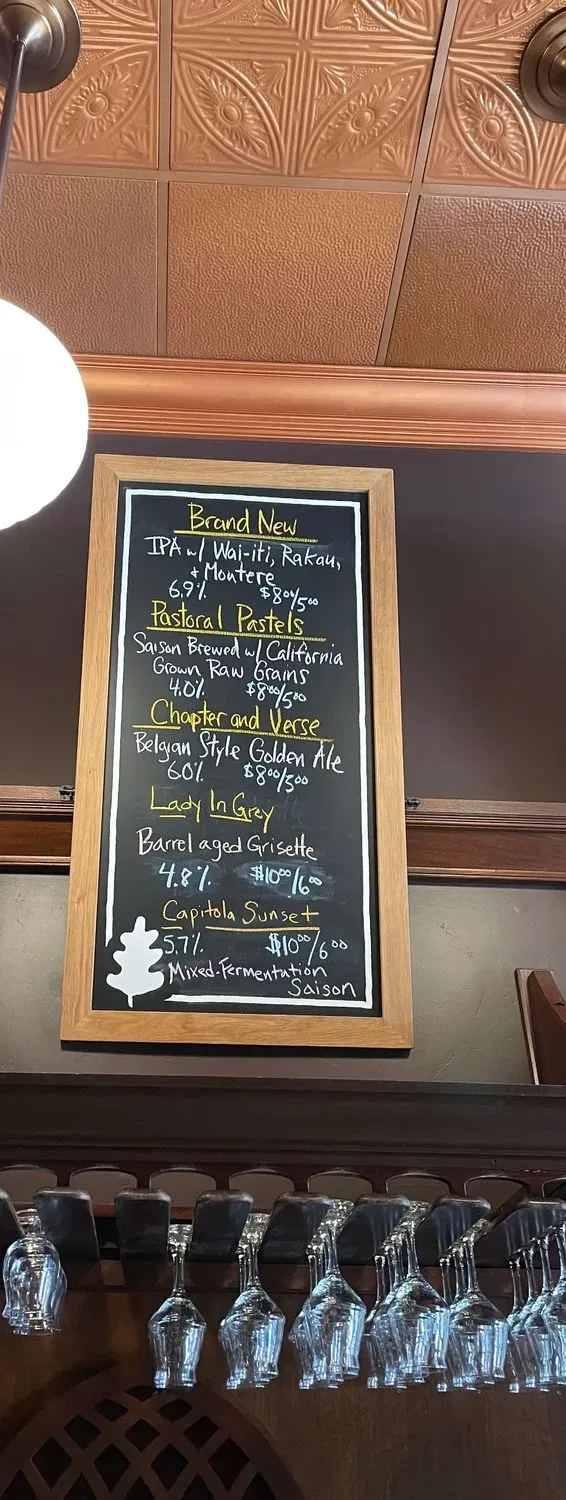 Brand New
IPA w/ Wai-iti, Rakau,
+ Montere
6.9% $8⁰⁰/5⁰⁰
Pastoral Pastels
Saison Brewed w/ California
Grown Raw Grains
4.0% $8⁰⁰/5⁰⁰
Chapter and Verse
Belgian Style Golden Ale
6.0% $8⁰⁰/5⁰⁰
Lady In Grey
Barrel aged Grisette
4.8% $10⁰⁰/6⁰⁰
Capitola Sunset
5.7% $10⁰⁰/6⁰⁰
Mixed-Fermentation
Saison